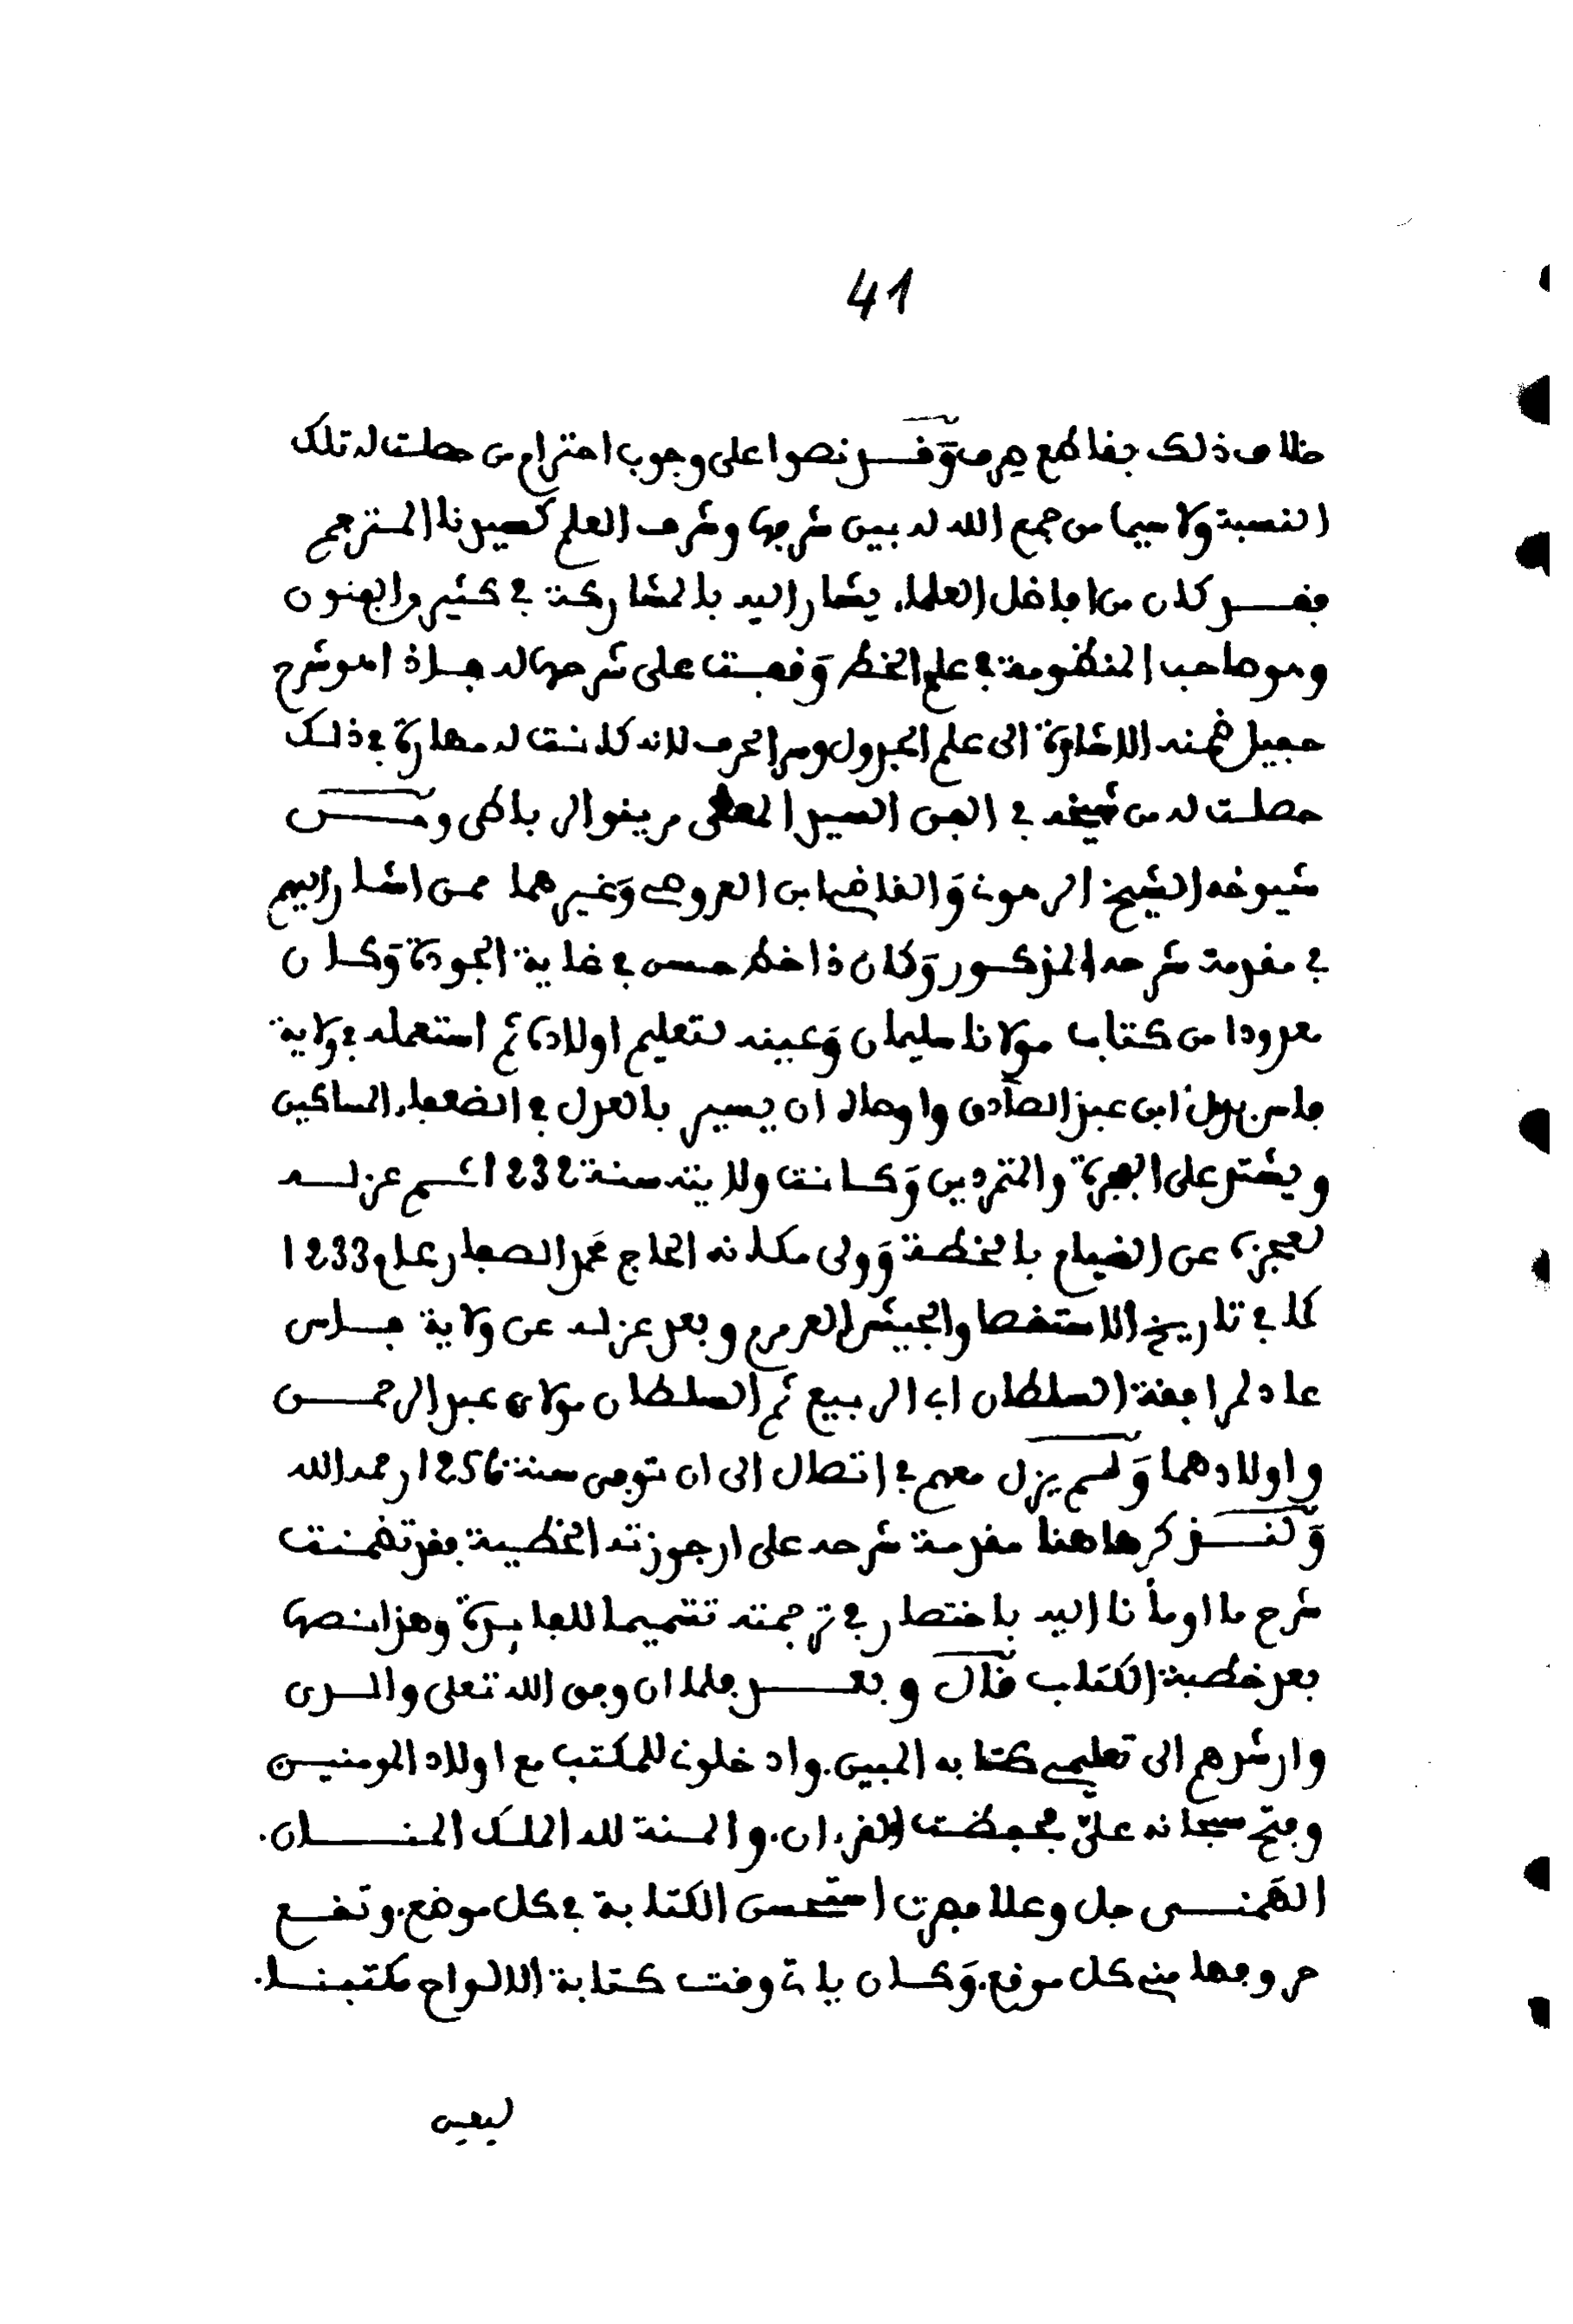 41
خلاف ذلك فقالهم هرف وقد نصوا على وجوب احترام من حصلت له تلك
النسبة ولا سيما من جمع الله له بين شرفها وشرف العلم كسيدنا المترجم
فقد كان من افاضل العلماء يشار اليه بالمشاركة في كثير من الفنون
وهو صاحب المنظومة في علم الخط وقفت على شرحها له بفاس اهو شرح
جميل ضمنه الاشارة الى علم الجدول وسر الحرف لانه كانت له مهارة في ذلك
حصلت له من شيخه في الفن السيد المعطي مرينو الرباطي ومن
شيوخه الشيخ الرهوني والقاضي ابن العروصي وغيرهما ممن اشار اليهم
في مقدمة شرحه المذكور وكان ذا خط حسن في غاية الجودة وكان
معدودا من كتاب مولانا سليمان وعينه لتعليم اولاده ثم استعمله في ولاية
فاس بدل ابن عبد الصادق واوصاه ان يسير بالعدل في الضعفاء المساكين
ويشتد على الفجرة والمتمردين وكانت ولايته سنة 1232 ثم عزله
لعجزه عن القيام بالخطة وولى مكانه الحاج محمد الصفار عام 1233
كما في تاريخ الاستقصا والجيش العرمرم وبعد عزله عن ولاية فاس
عاد لمرافقة السلطان ابي الربيع ثم السلطان مولاي عبد الرحمن
واولادهما ولم يزل معهم في اتصال الى ان توفي سنة 1256 رحمه الله
ولنذكر هاهنا مقدمة شرحه على ارجوزته الخطية فقد تضمنت
شرح ما اومأنا اليه باختصار في ترجمته تتميما للفايدة وهذا نصها
بعد خطبة الكتاب قال وبعد فلما ان وفق الله تعلى والدي
وارشدهم الى تعليمي كتابه المبين. وادخلوني للمكتب مع اولاد المومنين
وفتح سبحانه علي فحفظت القرءان. والمنة لله الملك المنان.
الهمني جل وعلا فصرت استحسن الكتابة في كل موضع. وتقع
حروفها مني كل موقع. وكان ياتي وقت كتابة الالواح مكتبنا.
لبعض